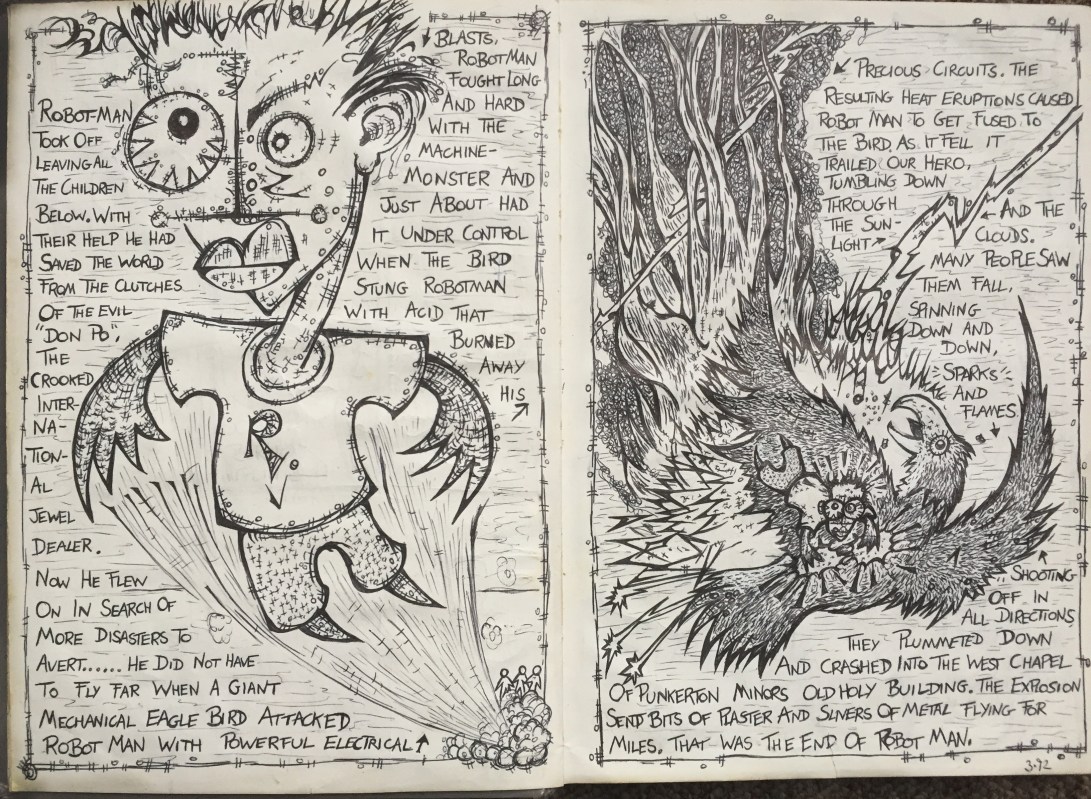 ROBOT-MAN
TOOK OFF
LEAVING ALL
THE CHILDREN
BELOW. WITH
THEIR HELP HE HAD
SAVED THE WORLD
FROM THE CLUTCHES
OF THE EVIL
"DON PO",
THE
CROOKED
INTER-
NA-
TION-
AL
JEWEL
DEALER.
NOW HE FLEW
ON IN SEARCH OF
MORE DISASTERS TO
AVERT...... HE DID NOT HAVE
TO FLY FAR WHEN A GIANT
MECHANICAL EAGLE BIRD ATTACKED
ROBOT MAN WITH POWERFUL ELECTRICAL
BLASTS,
ROBOTMAN
FOUGHT LONG
AND HARD
WITH THE
MACHINE-
MONSTER AND
JUST ABOUT HAD
IT UNDER CONTROL
WHEN THE BIRD
STUNG ROBOTMAN
WITH ACID THAT
BURNED
AWAY
HIS
R.
PRECIOUS CIRCUITS. THE
RESULTING HEAT ERUPTIONS CAUSED
ROBOT MAN TO GET FUSED TO
THE BIRD, AS IT FELL IT
TRAILED OUR HERO,
TUMBLING DOWN
THROUGH
THE SUN-
LIGHT
AND THE
CLOUDS.
MANY PEOPLE SAW
THEM FALL,
SPINNING
DOWN AND
DOWN,
SPARKS
AND
FLAMES
SHOOTING
OFF IN
ALL DIRECTIONS
THEY PLUMMETED DOWN
AND CRASHED INTO THE WEST CHAPEL
OF PUNKERTON MINORS OLD HOLY BUILDING. THE EXPLOSION
SEND BITS OF PLASTER AND SLIVERS OF METAL FLYING FOR
MILES. THAT WAS THE END OF ROBOT MAN.
3.92